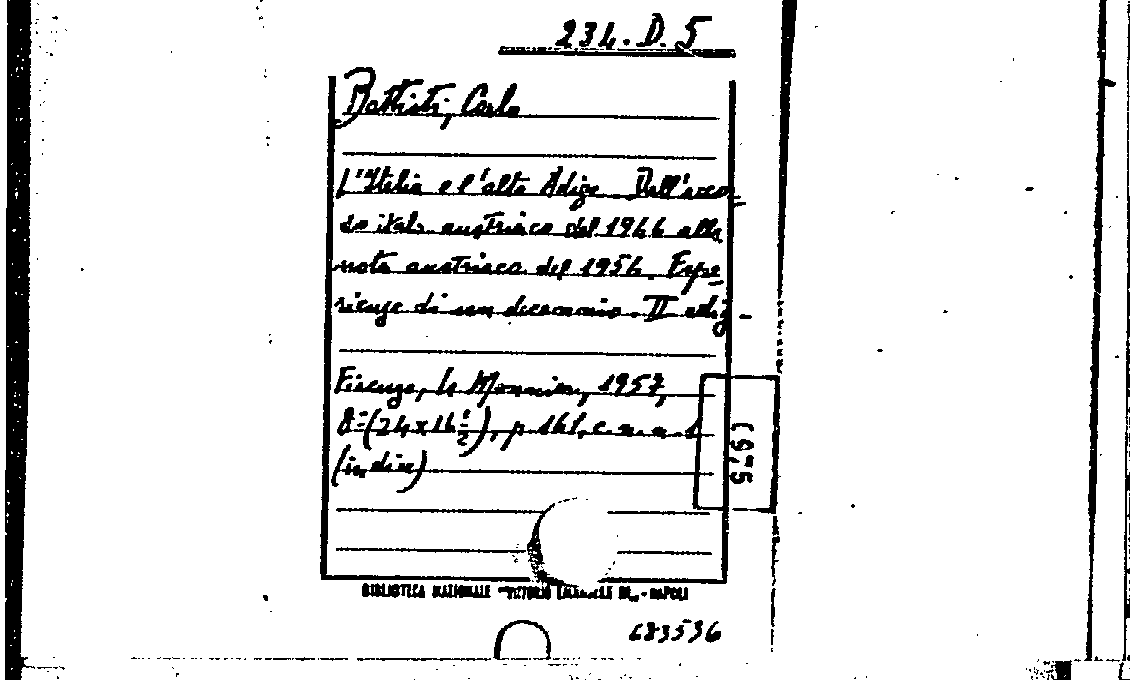 234.D.5
Battisti, Carlo
L'Italia e l'alto Adige. Dall'accor-
do italo austriaco del 1946 alla
nota austriaca del 1956. Espe
rienze di un decennio. II ediz-
Firenze, Le Monnier, 1957,
8=(24x16½), p. 161, c.n.n.1
(indice)
BIBLIOTECA NAZIONALE "VITTORIO EMANUELE III" - NAPOLI
683536